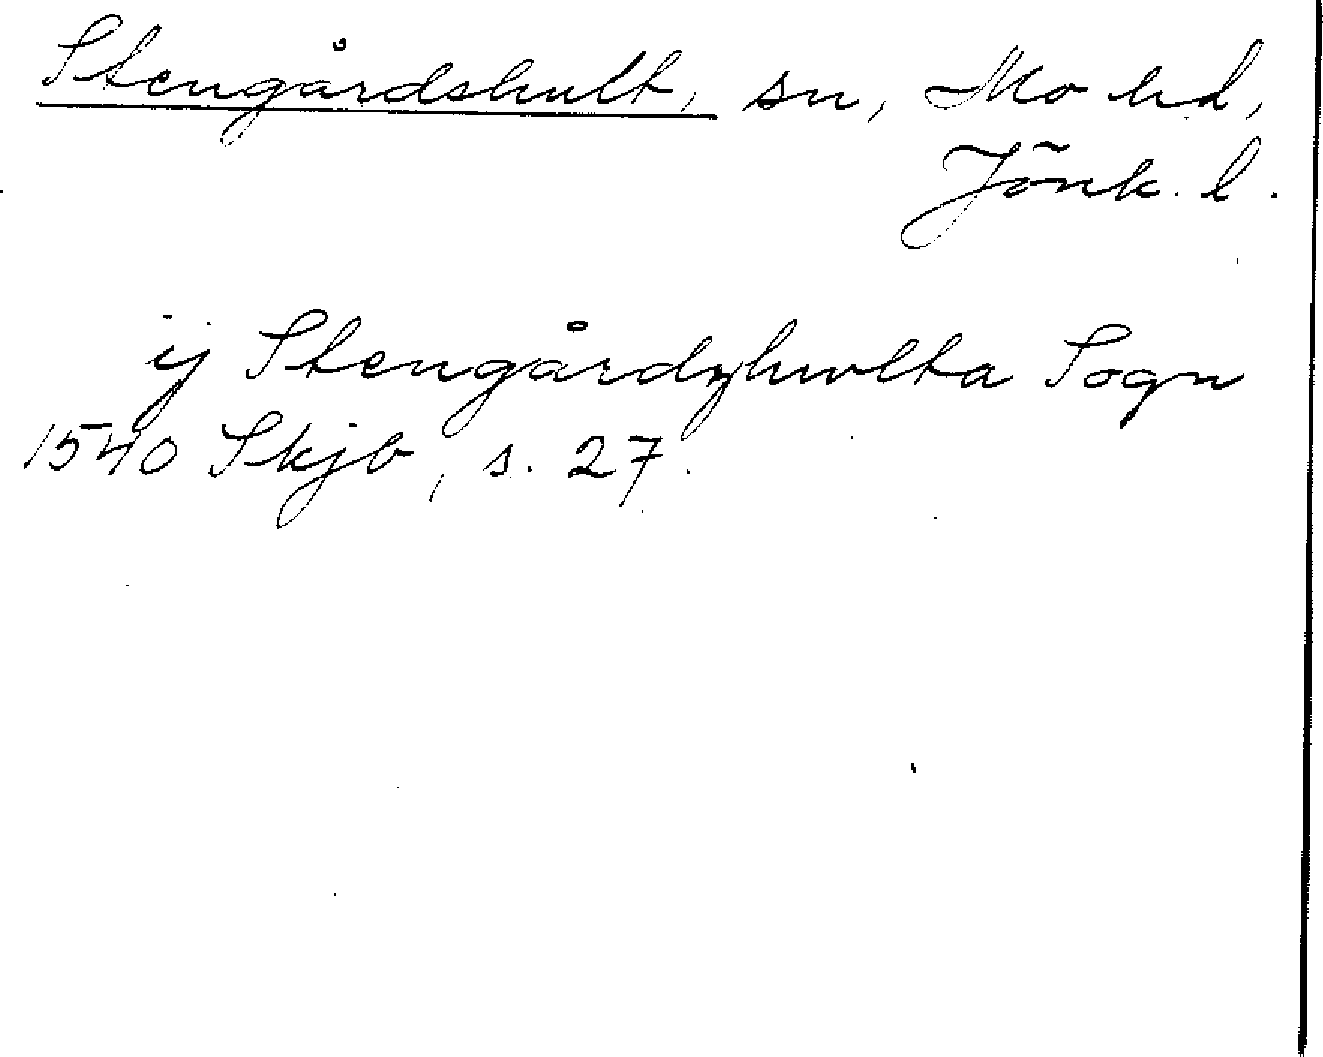 Stengårdshult, sn, Mo hd,
Jönk. l.
ij Stengårdzhwlta Sogn
1540 Skjb, s. 27.